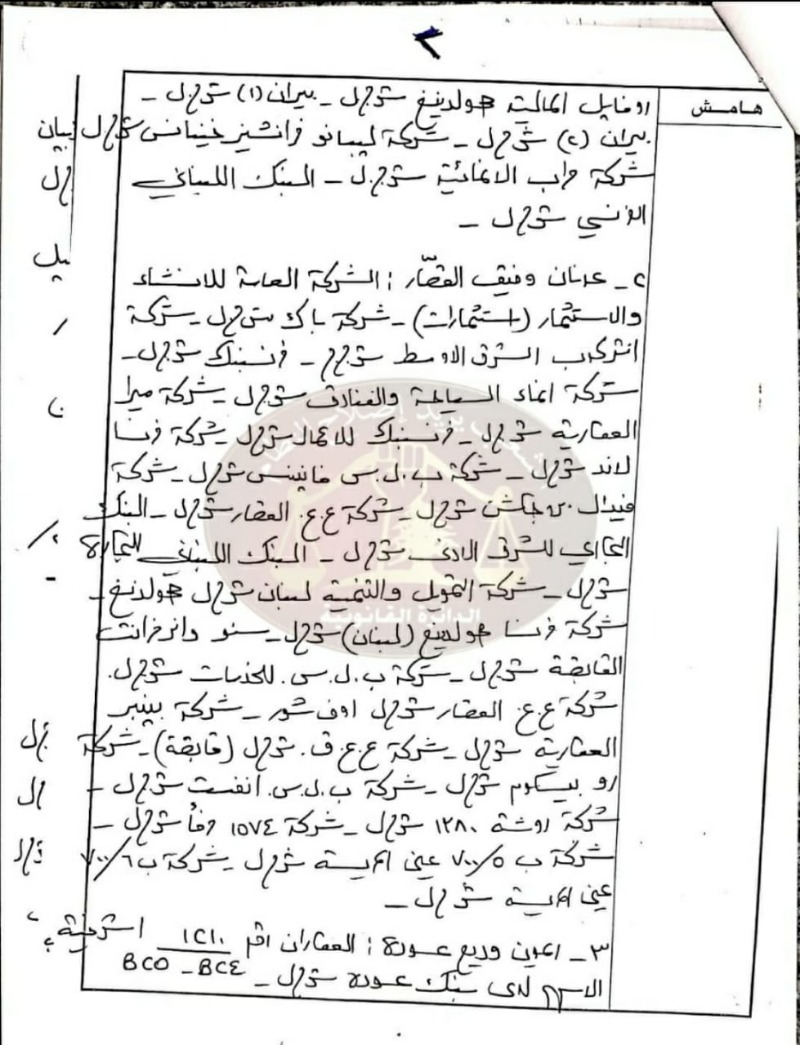 ٢
هامش
روفايل المالية هولدينغ ش.م.ل – بيران (١) ش.م.ل –
بيران (٢) ش.م.ل – شركة ليبانو فرانشيز فينانس ش.م.ل
شركة حراب الانمائية ش.م.ل – البنك اللبناني
الفرنسي ش.م.ل –
٢ – عدنان وفيق القصّار : الشركة العامة للانشاء
والاستثمار (استثمارات) – شركة باك ش.م.ل – شركة
انتركاب الشرق الاوسط ش.م.م – فرنسبنك ش.م.ل –
شركة انماء السياحة والفنادق ش.م.ل – شركة ميرا
العقارية ش.م.ل – فرنسبنك للاعمال ش.م.ل – شركة فرنسا
لاند ش.م.ل – شركة ب.ل.س فايننس ش.م.ل – شركة
فيدال ش.م.ل – شركة ع.ع. العقار ش.م.ل – البنك
التجاري للشرق الادنى ش.م.ل – البنك اللبناني للتجارة
ش.م.ل – شركة التمويل والتنمية لبنان ش.م.ل هولدينغ –
شركة فرنسا هولدينغ (لبنان) ش.م.ل –
القابضة ش.م.ل – شركة ب.ل.س. للخدمات ش.م.ل.
شركة ع.ع. العقار ش.م.ل اوف شور – شركة
العقارية ش.م.ل – شركة ع.ع.ق. ش.م.ل (قابضة) – شركة
ش.م.ل – شركة ب.ل.س. انفست ش.م.ل –
شركة روشة ١٢٨٠ ش.م.ل – شركة ١٥٧٤ ش.م.ل –
شركة ب ٧٠٠/٥ عين المريسة ش.م.ل – شركة ب ٧٠٠/٦
عين المريسة ش.م.ل –
٣ – وديع عودة : العقاران رقم ١٢١٠ اشرفية
BC٥ – BC٤
الاسهم لدى بنك عوده ش.م.ل –
الشعب يريد إصلاح النظام
الدائرة القانونية